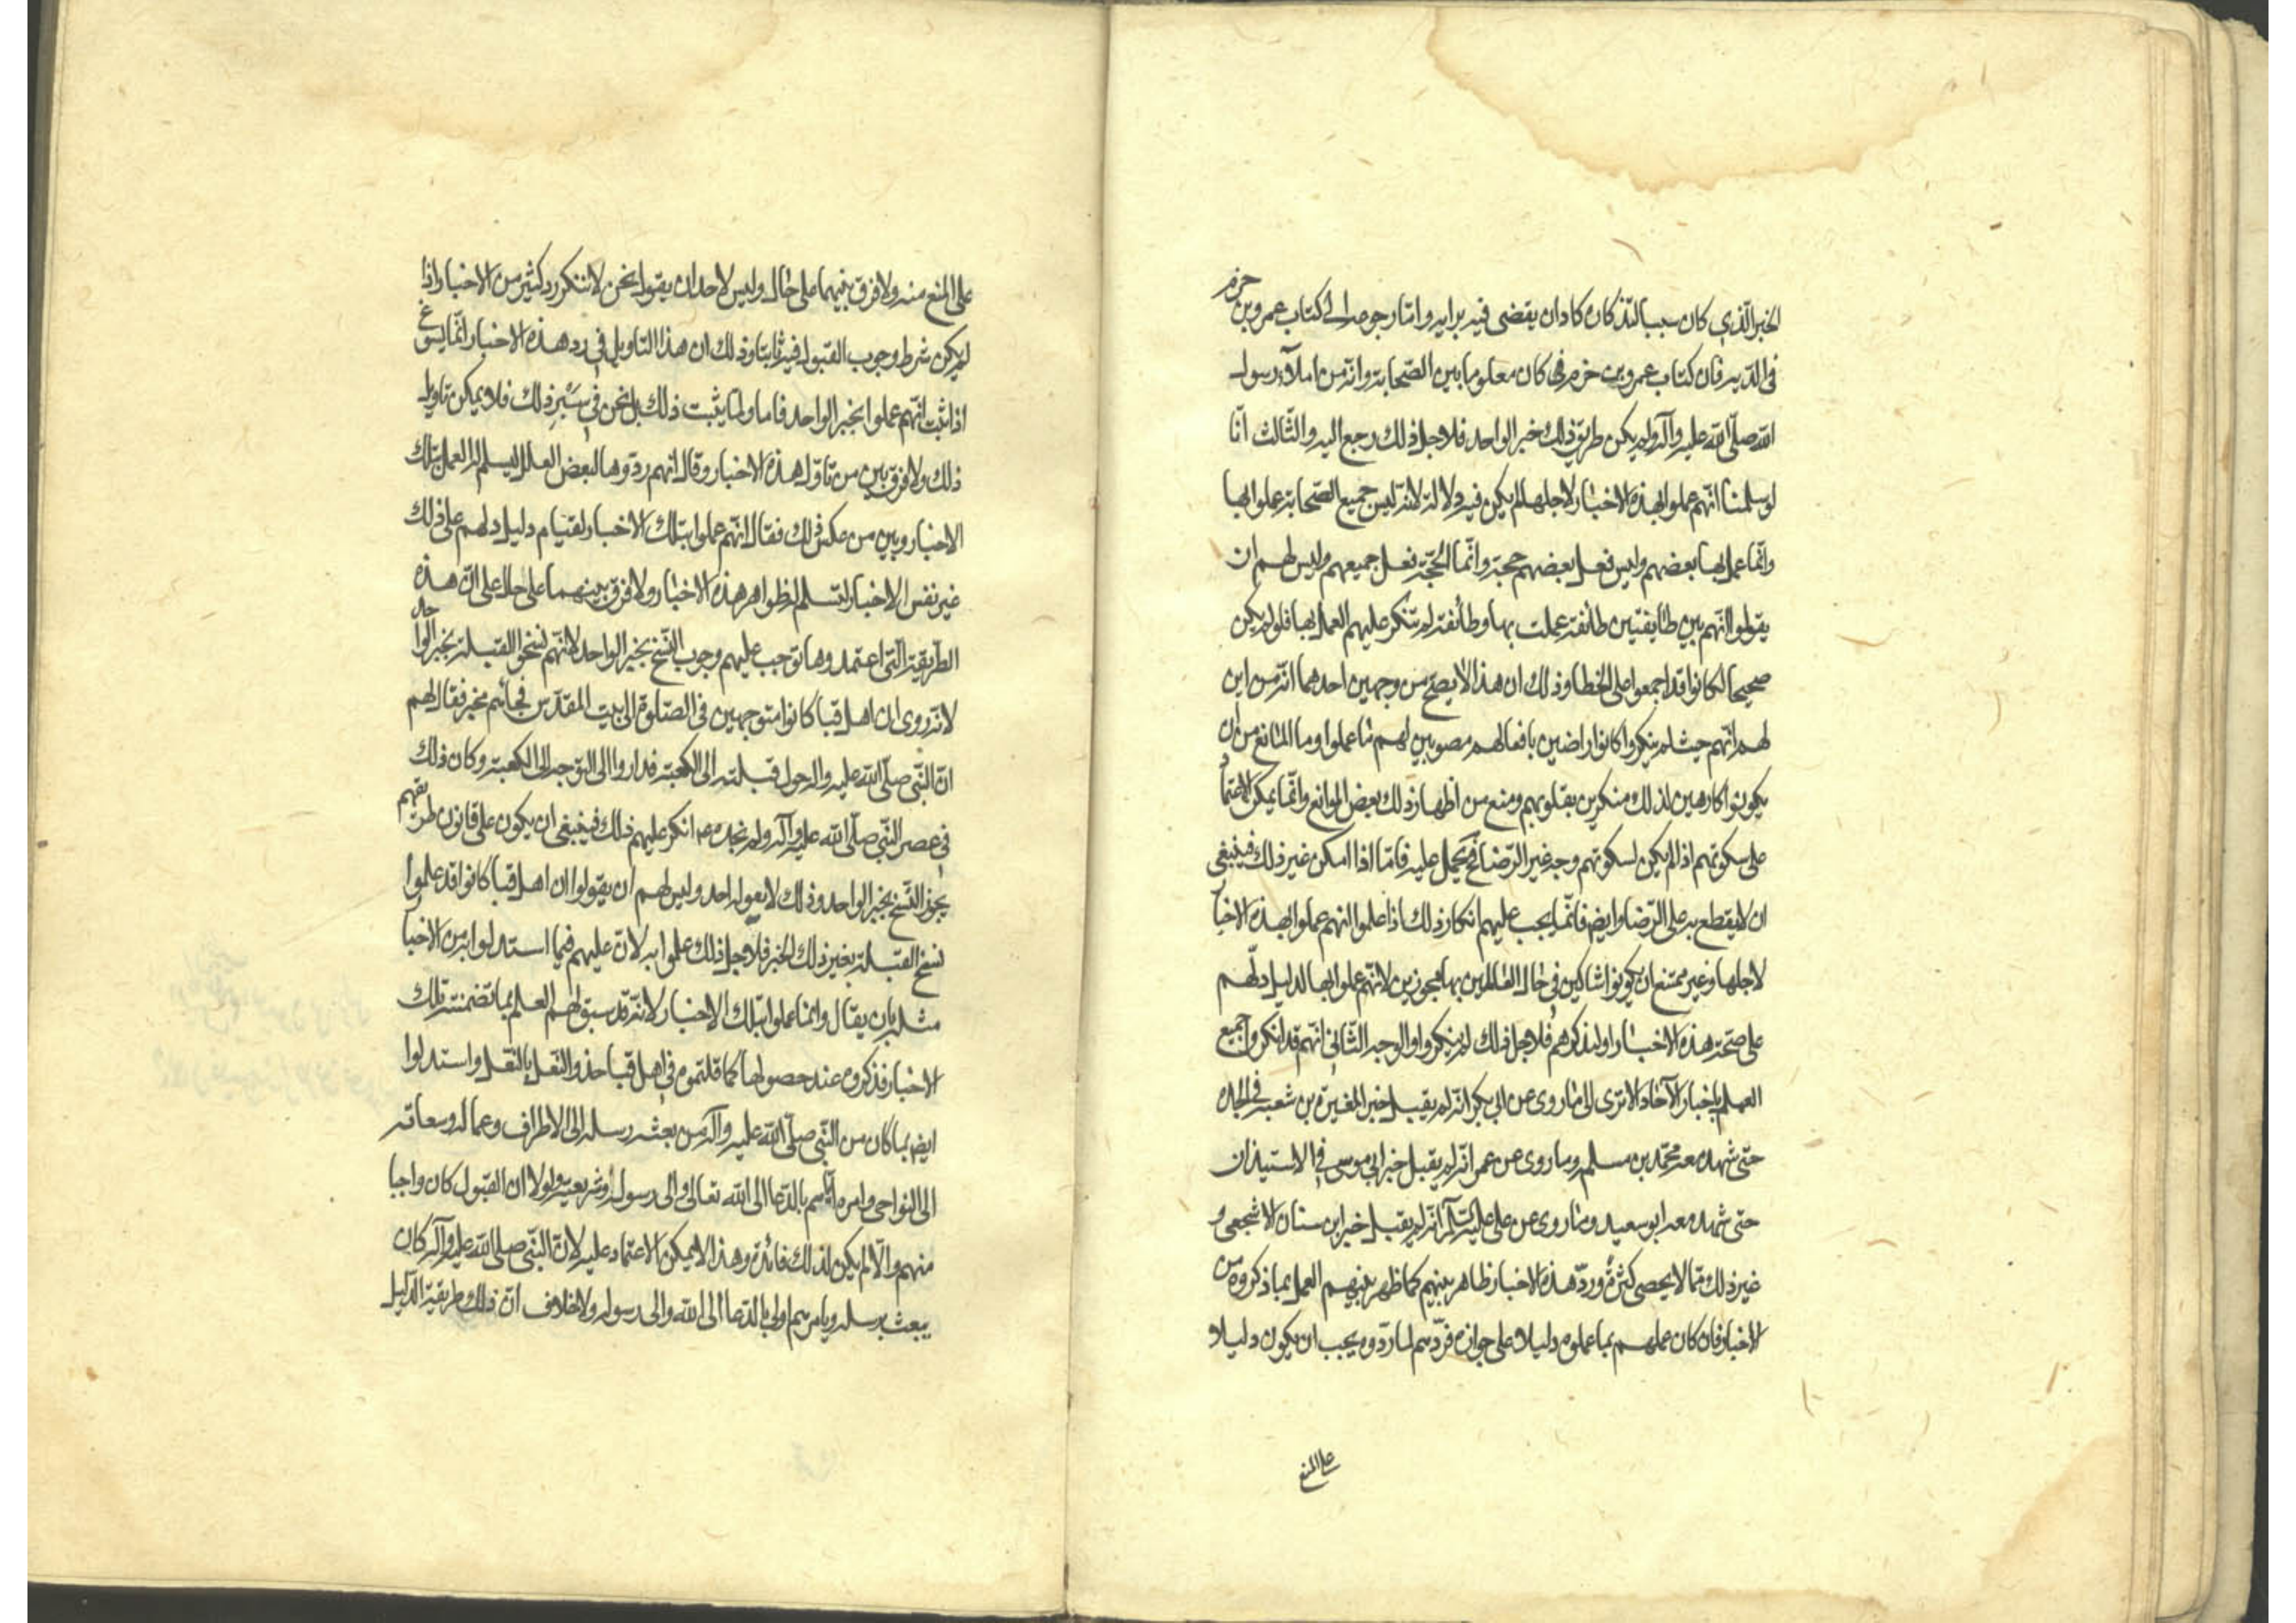 الخبر الّذي كان سببا لتذكاره كاد ان يقضى فيه برايه وامّا رجوعه الى كتاب عمرو بن حزم
فى الدّية فان كتاب عمرو بن حزم كان معلوما بين الصّحابة وانّه من املآء رسول
الله صلّى الله عليه وآله ولم يكن طريق ذلك خبر الواحد فلاجل ذلك رجع اليه والثّالث انّا
لو سلمنا انّهم عملوا بهذه الاخبار لاجلها لم يكن فيه دلالة لانّه ليس جميع الصّحابة عملوا بها
وانّما عمل بها بعضهم وليس فعل بعضهم حجة وانّما الحجّة فعل جميعهم وليس لهم ان
يقولوا انّهم بين طائفتين طائفة عملت بها وطائفة لم تنكر عليهم العمل بها فلو لم يكن
صحيحا لكانوا قد اجمعوا على الخطا وذلك ان هذا لا يصحّ من وجهين احدهما انّه من اين
لهم انّهم حيث لم ينكروا كانوا راضين بافعالهم مصوبين لهم ما عملوا وما المانع من ان
يكونوا كارهين لذلك منكرين بقلوبهم ومنع من اظهار ذلك بعض الموانع وانّما يمكن الاعتماد
على سكوتهم اذا لم يكن لسكوتهم وجه غير الرّضا فيحمل عليه فامّا اذا امكن غير ذلك فينبغى
ان لا يقطع به على الرّضا وايض فانّما يجب عليهم انكار ذلك اذا علموا انهم عملوا بهذه الاخبار
لاجلها وغير ممتنع ان يكونوا شاكين فى حال العاملين بها مجوزين لانّهم عملوا بها لدليل دلّهم
على صحّة هذه الاخبار او لتذكرهم فلاجل ذلك لم ينكروا والوجه الثّانى انّهم قد انكروا جميع
العمل باخبار الآحاد الا ترى الى ما روى عن ابى بكر انّه لم يقبل خبر المغيرة بن شعبة فى الجدة
حتّى شهد معه محمّد بن مسلم وما روى عن عمر انّه لم يقبل خبر ابى موسى فى الاستيذان
حتّى شهد معه ابو سعيد وما روى عن على عليه السّلام انّه لم يقبل خبر ابن سنان الاشجعى و
غير ذلك ممّا لا يحصى كثرة وردّ هذه الاخبار ظاهر بينهم كما ظهر بينهم العمل بما ذكروه من
الاخبار فان كان عملهم بما عملوه دليلا على جوازه فردّهم لما ردّوه يجب ان يكون دليلا
على المنع
على المنع منه ولا فرق بينهما على حال وليس لاحد ان يقول نحن لا ننكر رد كثير من الاخبار اذا
لم يكن شرط وجوب القبول فيه ثابتا وذلك ان هذا التاويل فى رد هذه الاخبار انّما يسوغ
اذا ثبت انّهم عملوا بخبر الواحد فاما ولما يثبت ذلك بل نحن فى سبر ذلك فلا يمكن تاويل
ذلك ولا فرق بين من تاوّل هذه الاخبار وقال انهم ردّوها لبعض العلل ليسلم له العمل بتلك
الاخبار وبين من عكس ذلك فقال انّهم عملوا بتلك الاخبار لقيام دليل دلهم على ذلك
غير نفس الاخبار لتسلم له ظواهر هذه الاخبار ولا فرق بينهما على حال على انّ هذه
الطّريقة الّتى اعتمدوها توجب عليهم وجوب النّسخ بخبر الواحد لانّهم نسخوا القبلة بخبر الواحد
لانّه روى ان اهل قبا كانوا متوجهين فى الصّلوة الى بيت المقدّس فجائهم مخبر فقال لهم
انّ النّبى صلّى الله عليه واله حول قبلته الى الكعبة فداروا الى التوجه الى الكعبة وكان ذلك
فى عصر النّبى صلّى الله عليه وآله ولم نجده ع انكر عليهم ذلك فينبغى ان يكون على قانون طريقهم
يجوز النّسخ بخبر الواحد وذلك لا يقوله احد وليس لهم ان يقولوا ان اهل قبا كانوا قد علموا
نسخ القبلة بغير ذلك الخبر فلاجل ذلك عملوا به لانّ عليهم فيما استدلوا به من الاخبار
مثله بان يقال وانما عملوا بتلك الاخبار لانّه قد سبق لهم العلم بما تضمنته تلك
الاخبار فذكروه عند حصولها كما قلتموه فى اهل قبا حذو النّعل بالنّعل واستدلوا
ايض بما كان من النّبى صلّى الله عليه وآله من بعثه رسله الى الاطراف وعماله وسعاته
الى النواحى وامره اياهم بالدّعا الى الله تعالى والى رسوله وشريعته ولولا ان القبول كان واجبا
منهم والّا لم يكن لذلك فائدة وهذا لا يمكن الاعتماد عليه لانّ النّبى صلى الله عليه وآله كان
يبعث برسله ويامرهم اولى بالدّعا الى الله والى رسوله ولا خلاف انّ ذلك طريقة الدّليل